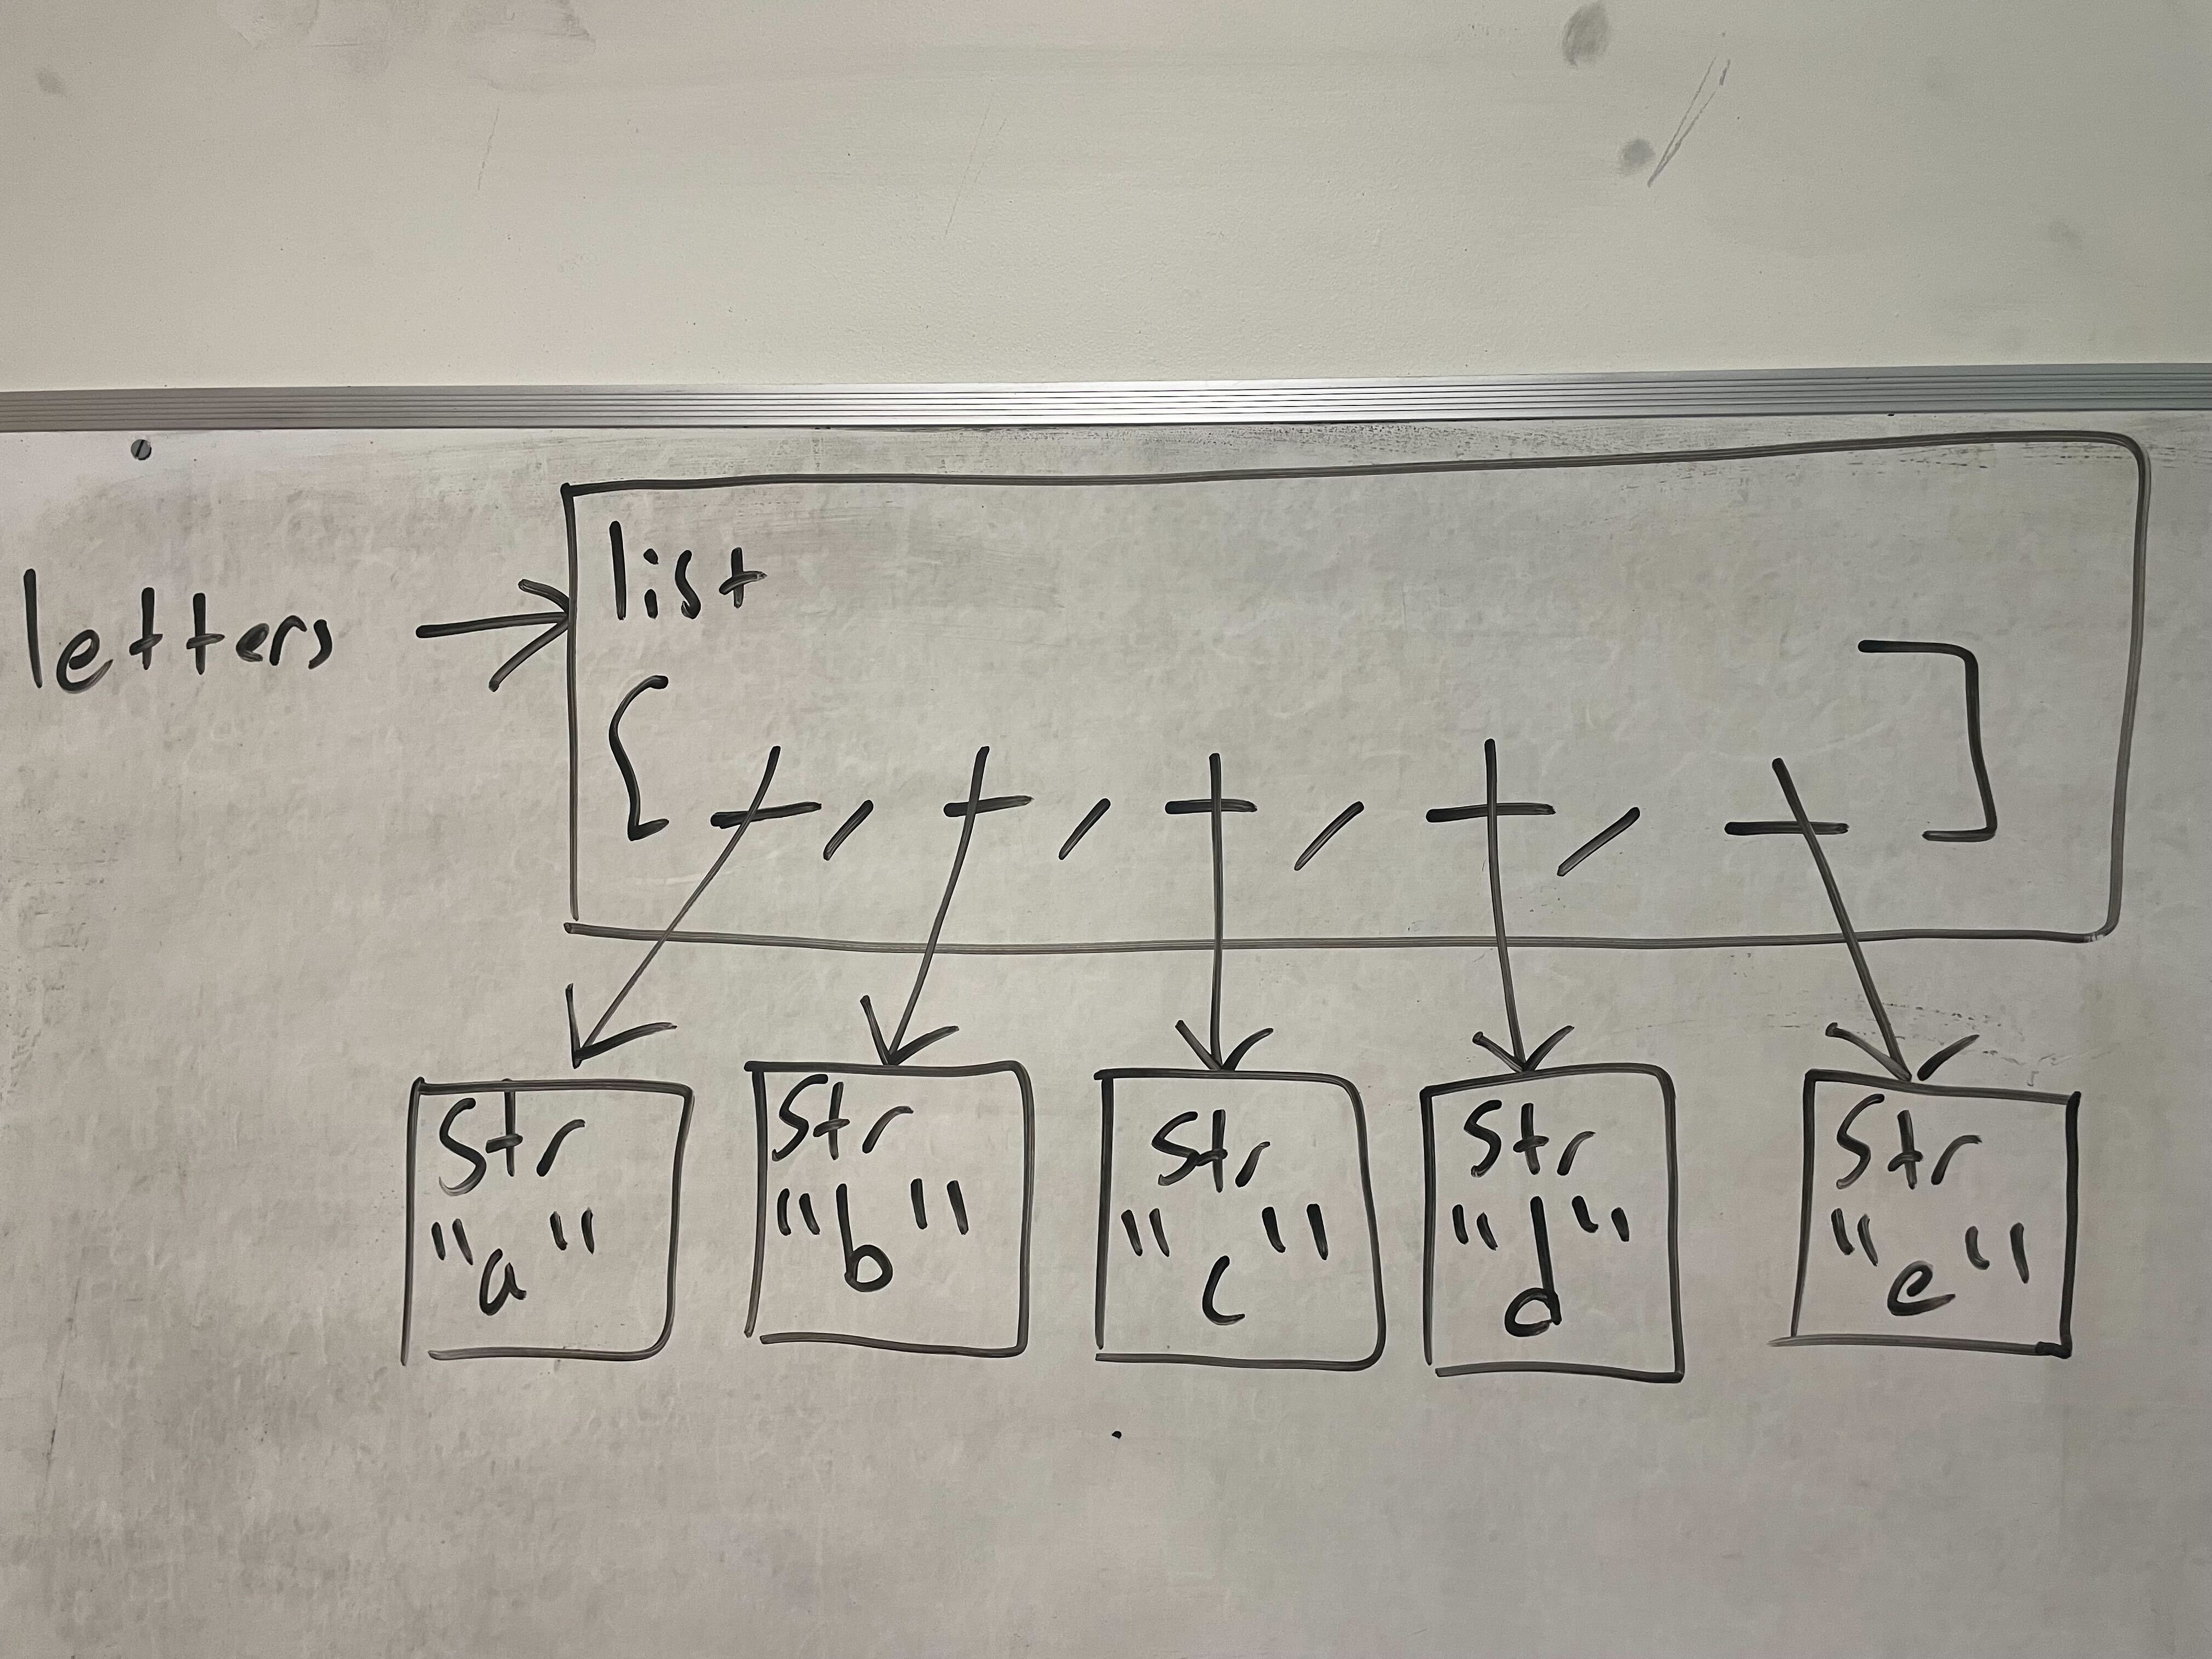 letters
list
[ _, _, _, _, _ ]
str
"a"
str
"b"
str
"c"
str
"d"
str
"e"